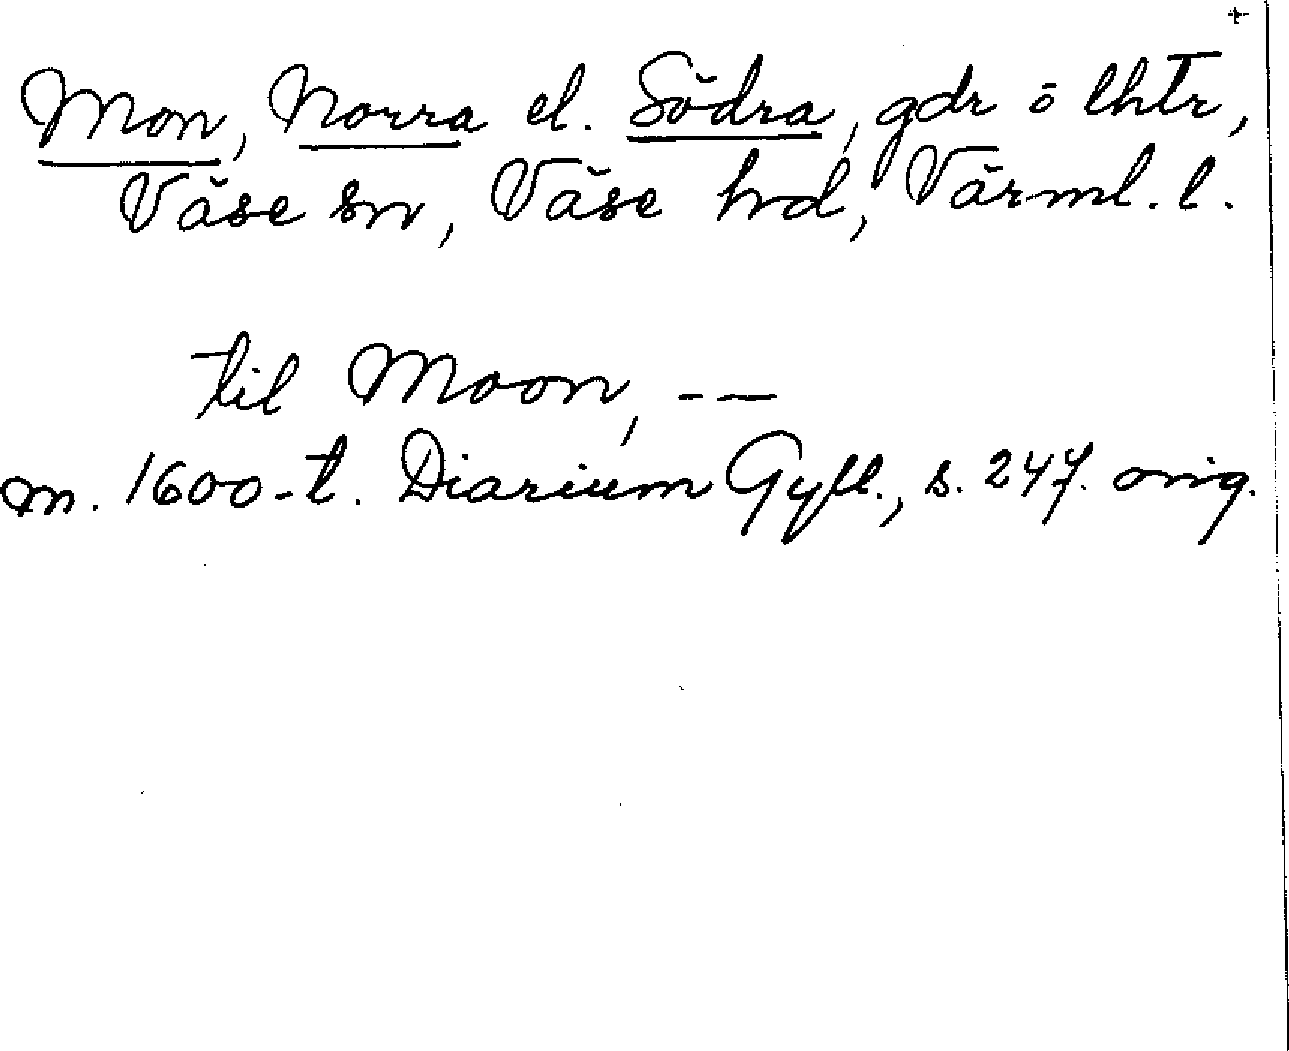 +
Mon, Norra el. Södra, gdr o lhtr,
Väse sn, Väse hd, Värml. l.
til Moon, - —
m. 1600-t. Diarium Gyll., s. 247. orig.